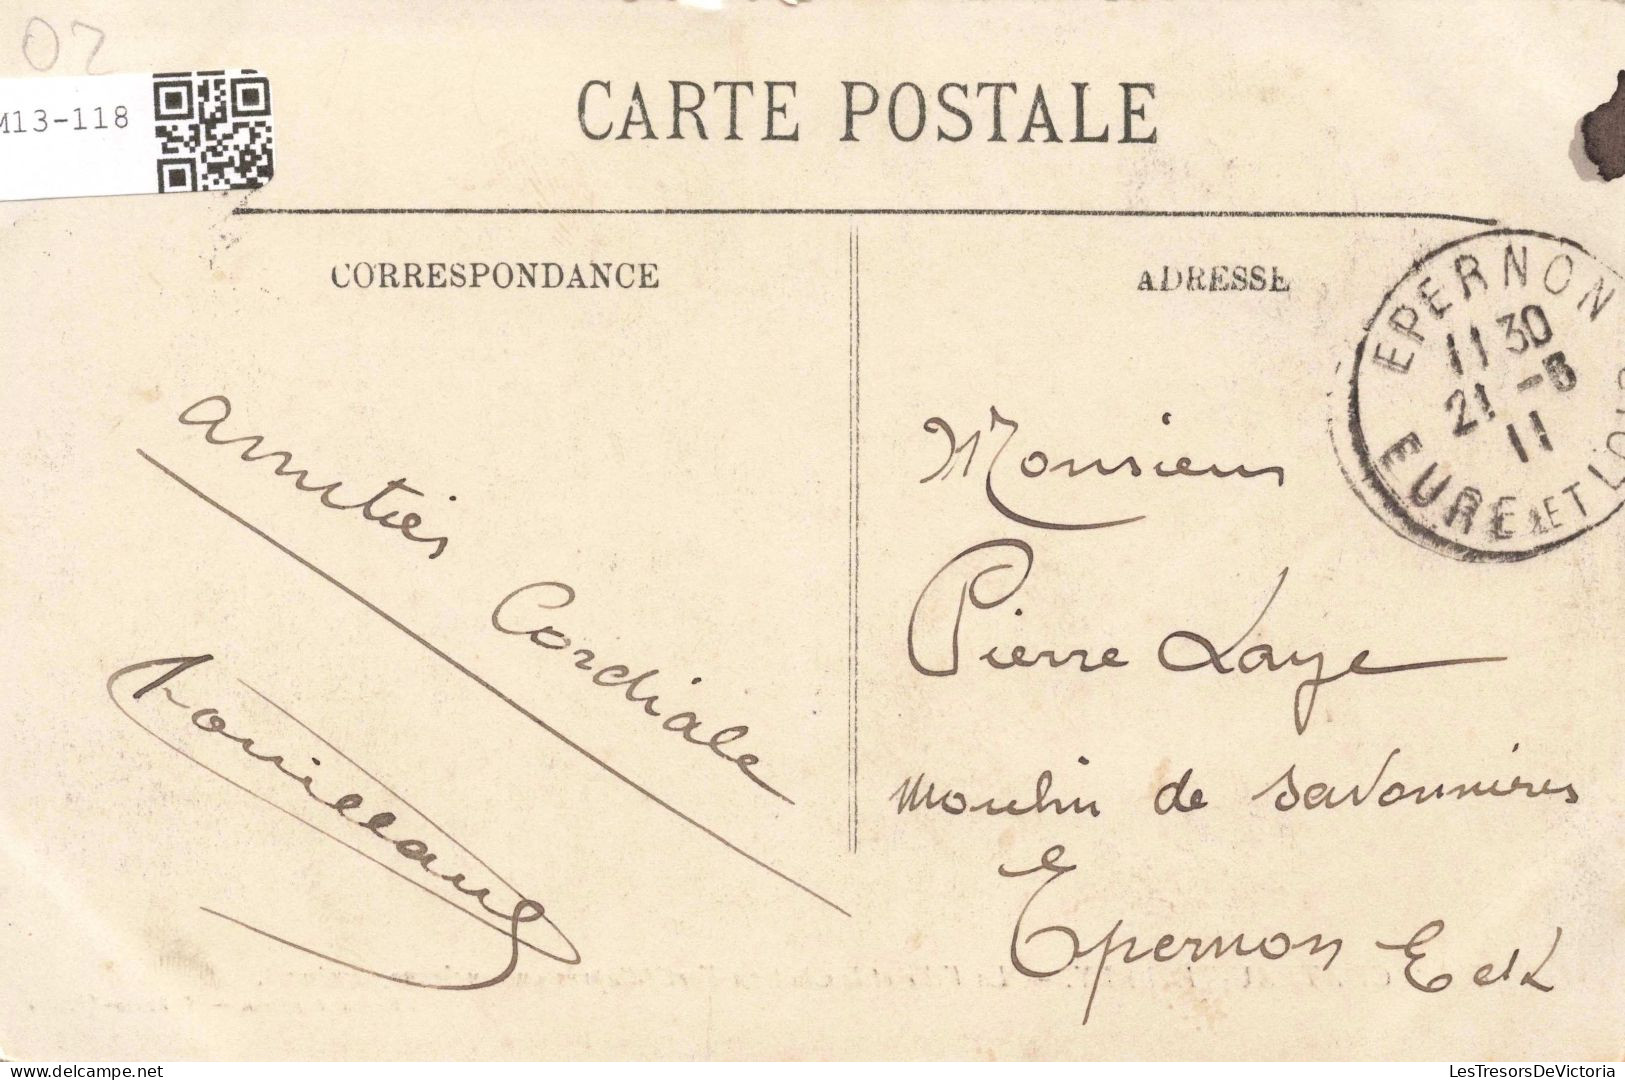 02
M13-118
CARTE POSTALE
CORRESPONDANCE
ADRESSE
EPERNON
11 30
21 -8
11
EURE ET LOIR
amitiés Cordiale
Monsieur
Pierre Laye
Moulin de Savonnières
Epernon E et L
LesTresorsDeVictoria